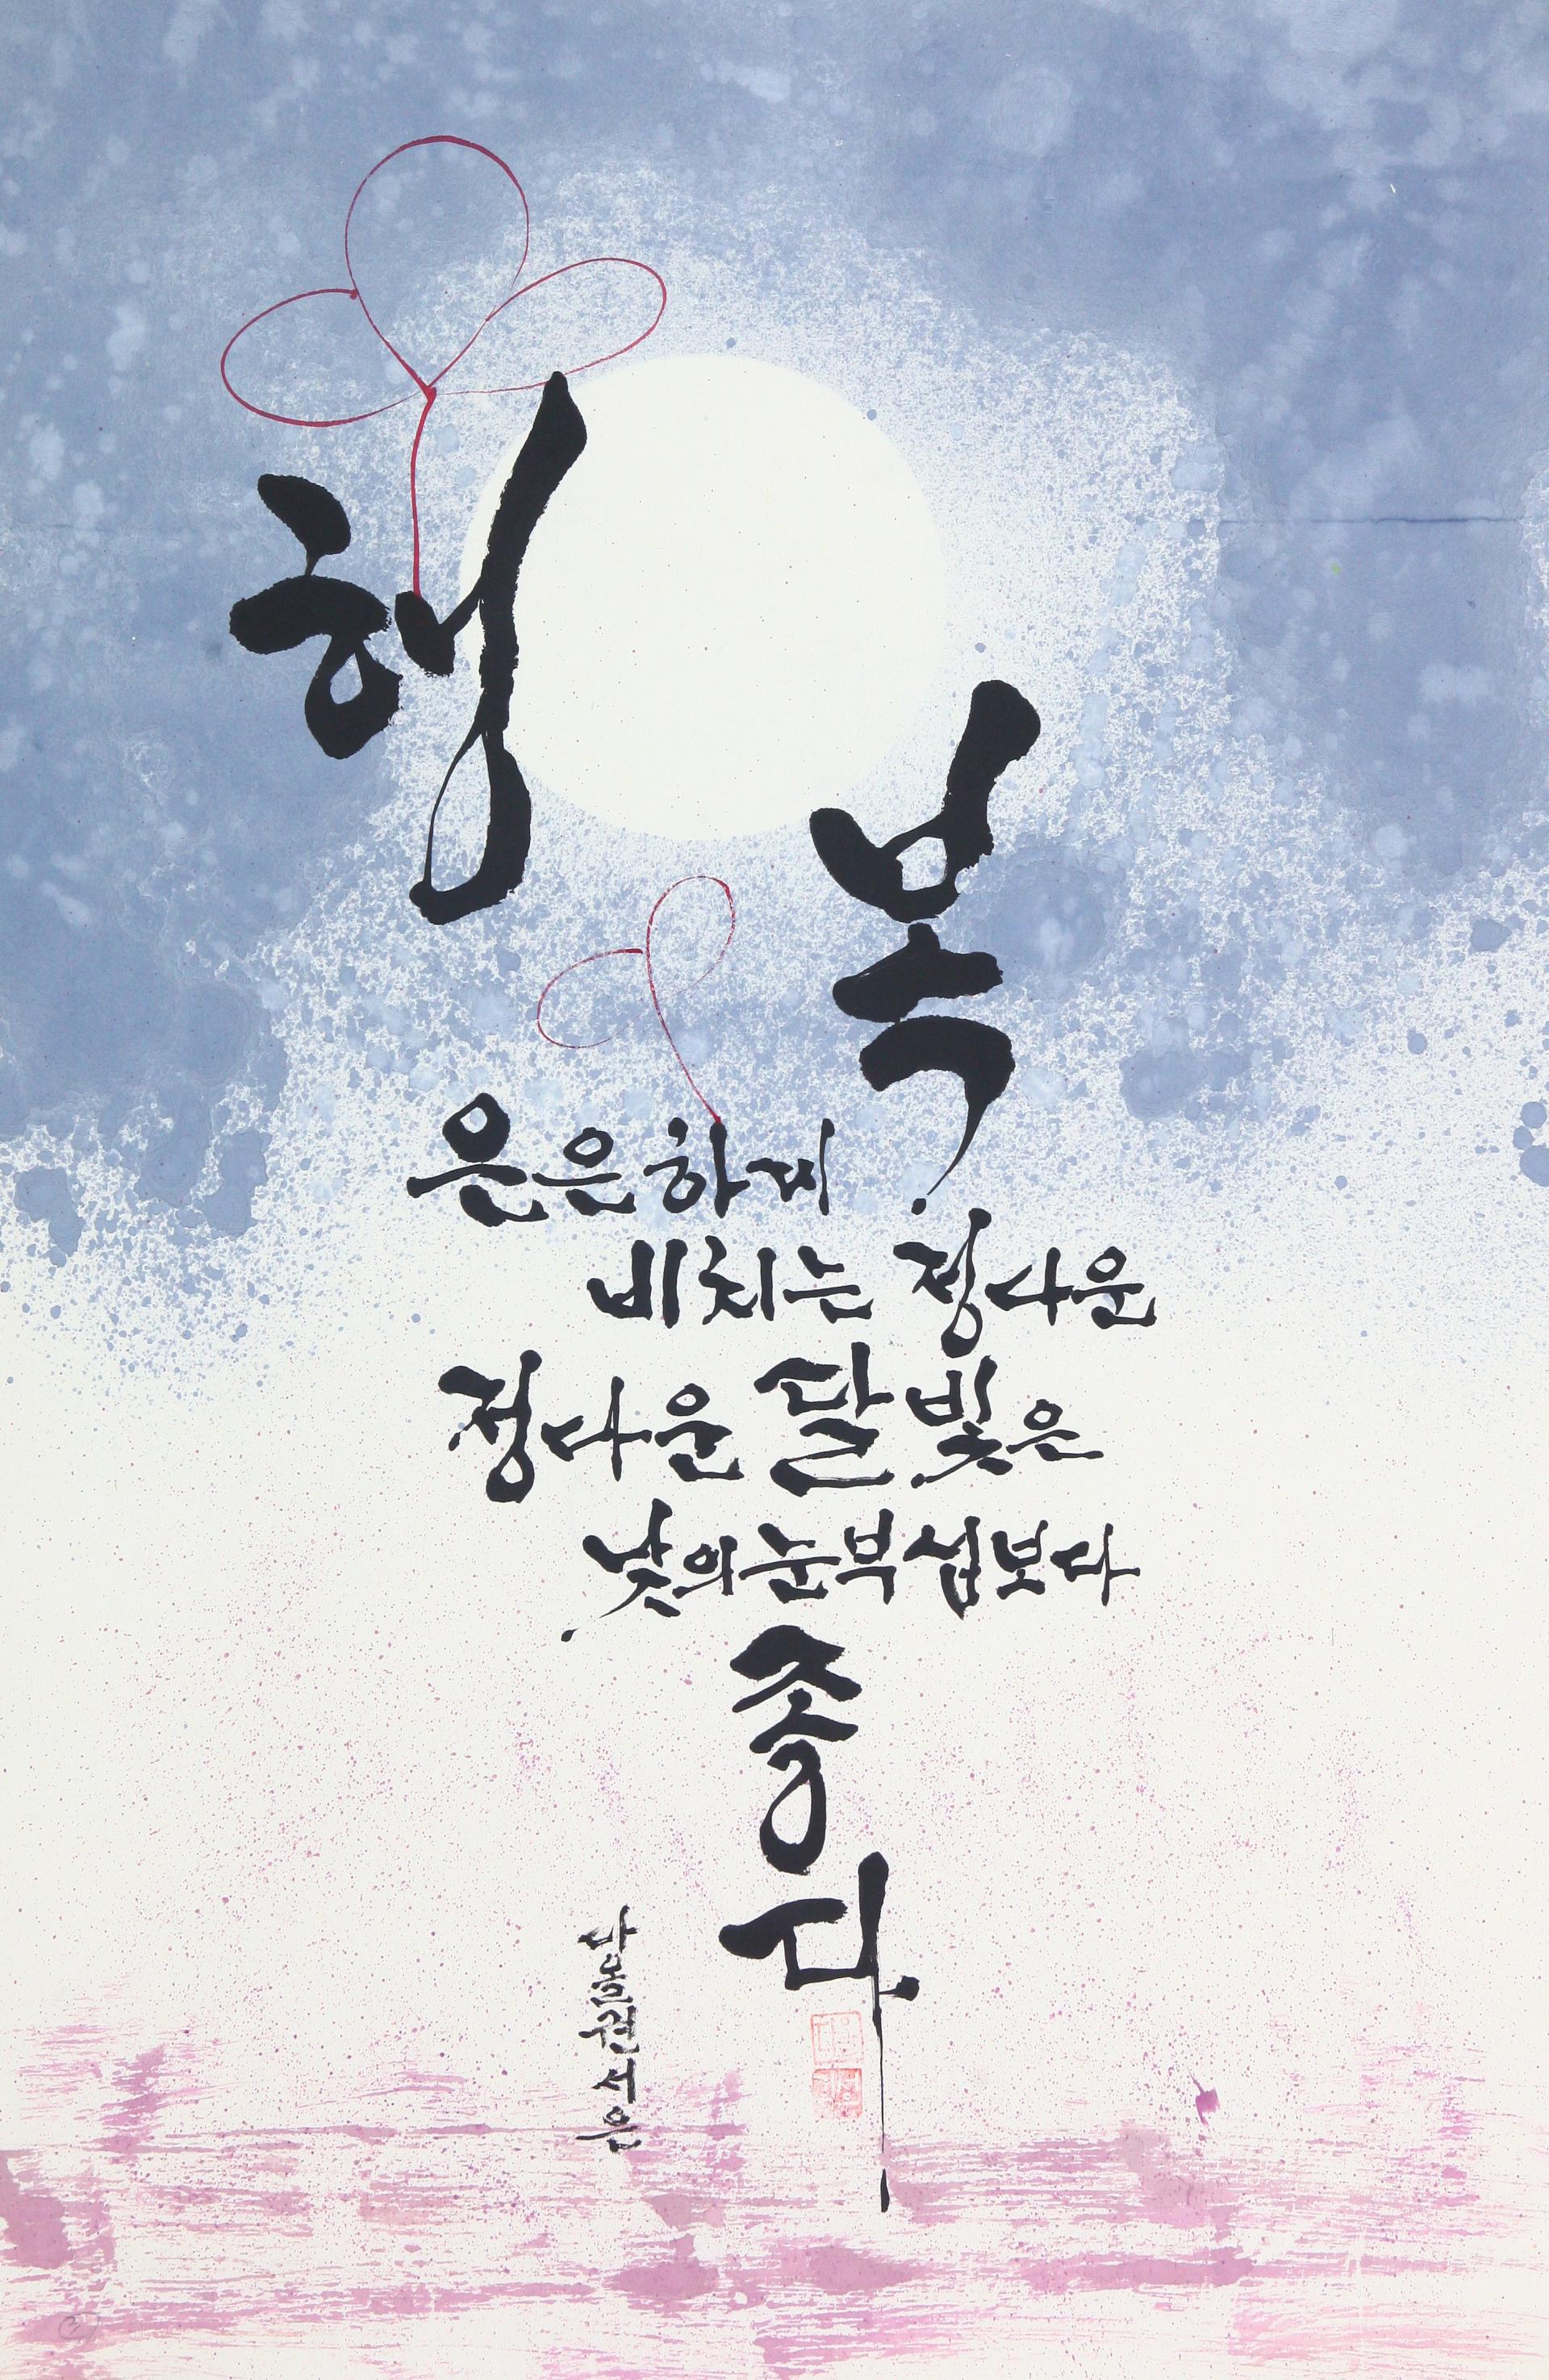 행복
은은하게
비치는 정다운
정다운 달빛은
낮의 눈부섭보다
좋다
권서은